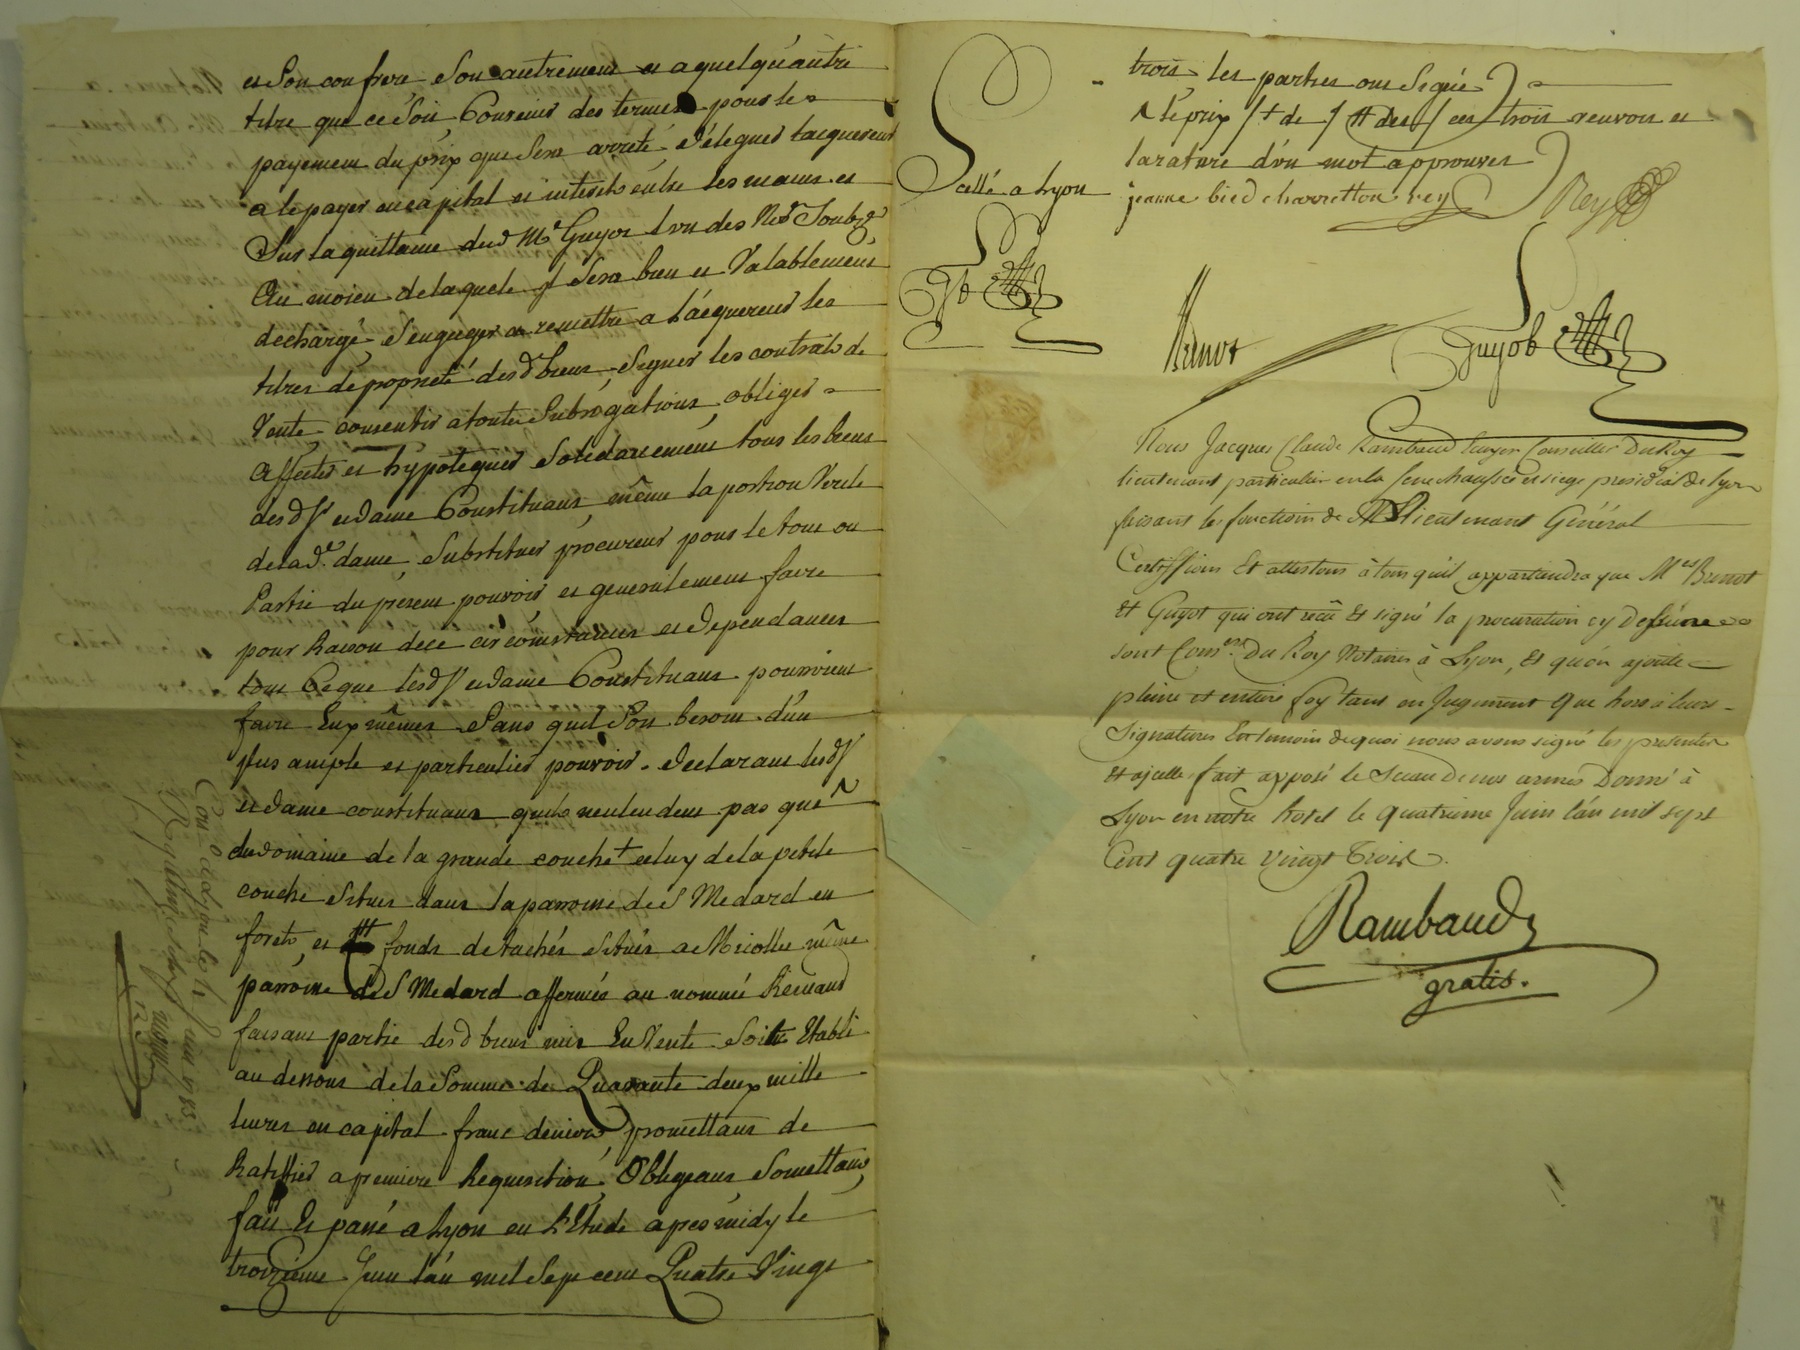 et Son confrere Soit autrement et a quelqu'autre
titre que ce Soit Convenir des termes pour le
payement du prix que Sera arreté Déléguer lacquereur
a le payer en capital et interets entre les mains et
Sur la quittance dud Me Guyot l'un des No.es Soubz.es
Au moien de laquele il Sera bien et Valablement
dechargé S'engager a remettre a l'acquereur les
titres de proprieté desd biens Signer les contrats de
Vente consentir a toutes Subrogations obliger
affecter et hypotequer Solidairement tous les biens
desd Sr et dame Constituans même la portion Virile
de lad.e dame, Substituer procureur pour le tout ou
Partie du present pouvoir et generalement faire
pour Raison de ce circonstances et dependances
tout Ce que lesd Sr et dame Constituans pourroient
faire Eux mêmes Sans quil Soit besoin d'un
plus ample et particulier pouvoir. declarant lesd Sr
et dame constituans quils nentendent pas que
du domaine de la grande couche + celuy de la petite
couche Situés dans la paroisse de S Medard en
forets et fonds detachés Situés a même
paroisse de S Medard affermés au nommé Renaud
faisant partie desd biens mis En Vente Soit Etabli
au dessous de la Somme de Quarante deux mille
livres en capital franc deniers promettans de
Ratiffier a premiere Requisition, Obligeans Somettans,
fait Et passé a Lyon en L'Etude apres midy le
troizieme Juin l'an mil Sept cent Quatre Vingt
Con.lé a Lyon le 4 Juin 1783
trois, les parties ont Signé
le prix /+ de / ces trois renvois et
la rature d'un mot approuvés
jeanne bied charretton rey Rey
Scellé a Lyon
Gb
Brenot Guyot
Nous Jacques Claude Rambaud Ecuyer Conseiller Du Roy
lieutenant particulier en la Senechaussée et siege presidial de Lyon
faisant les fonctions de M. Lieutenant Général
Certiffions Et attestons à tous quil appartiendra que M.es Brenot
Et Guyot qui ont recû Et signé la procuration cy dessus
sont Cons.ers Du Roy Notaires à Lyon, Et qu'on ajoute
pleine et entiere foy tant en Jugement que hors à leurs
Signatures En temoin de quoi nous avons signé les presentes
Et a icelles fait apposé le Sceau de nos armes Donné à
Lyon en notre hotel le quatrieme Juin l'an mil sept
Cent quatre vingt Trois.
Rambaud
gratis.